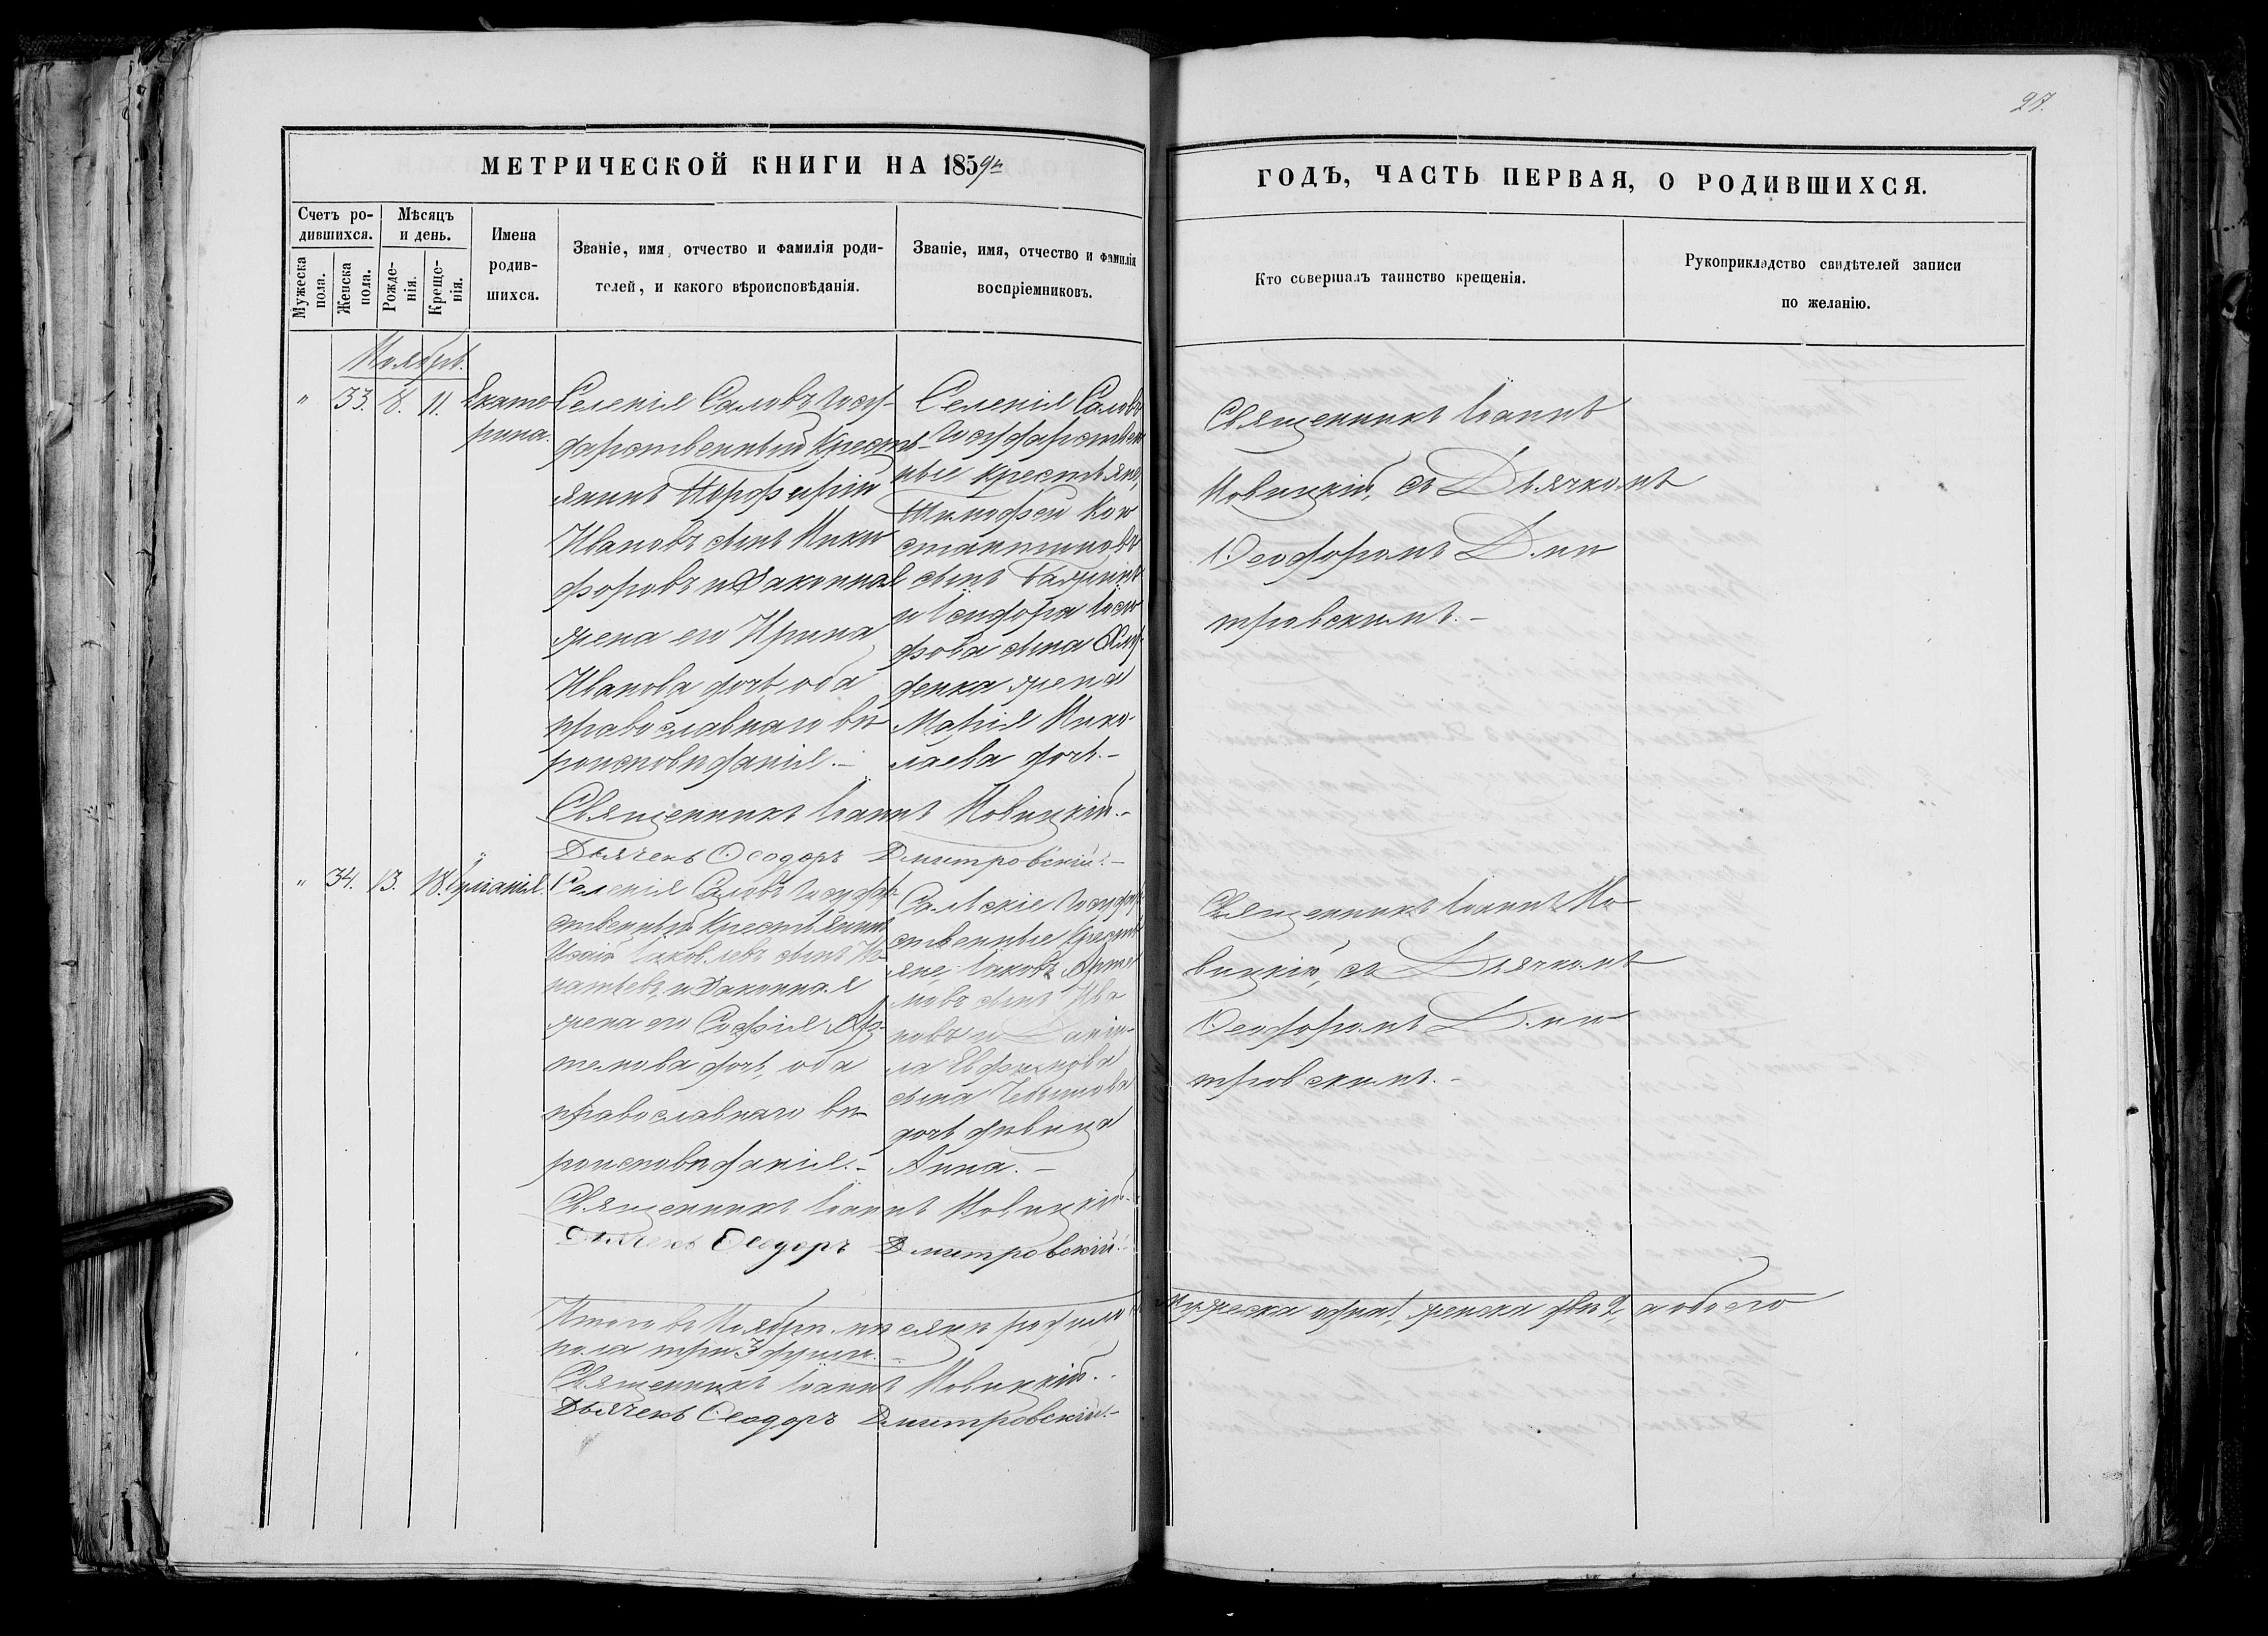 27.
МЕТРИЧЕСКОЙ КНИГИ НА 1859й
ГОДЪ, ЧАСТЬ ПЕРВАЯ, О РОДИВШИХСЯ.
Счетъ ро-
дившихся.
Мужеска
пола.
Женска
пола.
Мѣсяцъ
и день.
Рожде-
нія.
Креще-
нія.
Имена
родив-
шихся.
Званіе, имя, отчество и фамилія роди-
телей, и какого вѣроисповѣданія.
Званіе, имя, отчество и фамилія
воспріемниковъ.
Кто совершалъ таинство крещенія.
Рукоприкладство свидѣтелей записи
по желанію.
Ноябрь.
" 33. 8. 11.
Екате-
рина.
Селенія Саловъ Госу-
дарственный Кресть-
янинъ Порфирій
Ивановъ сынъ Ники
форовъ и Законная
жена его Ирина
Иванова дочь, оба
православнаго вѣ
роисповѣданія.-
Селенія Саловъ
Государствен
ные крестьяне,
Тимофей Кон
стантиновъ
сынъ
и Ісидора
сына
денка жена
Марія Нико-
лаева дочь.-
Священникъ Іоаннъ Новицкій.-
Дьячекъ Ѳеодоръ Дмитровскій.-
Священникъ Іоаннъ
Новицкій, съ Дьячкомъ
Ѳеодоромъ Дми
тровскимъ.-
" 34. 13. 18. Іуліанія.
Селенія Саловъ Государ-
ственный Крестьянинъ
Іаковлевъ сынъ Иг-
натьевъ, и Законная
жена его Софія Ар-
темова дочь, оба
православнаго вѣ
роисповѣданія.-
Сальскіе Государ
ственные Кресть
яне, Іаковъ Арте
мовъ сынъ Ива
новъ и Даніи-
ла Евфимова
сына
дочь дѣвица
Анна.-
Священникъ Іоаннъ Новицкій.
Дьячекъ Ѳеодоръ Дмитровскій.-
Священникъ Іоаннъ Но
вицкій, съ Дьячкомъ
Ѳеодоромъ Дми
тровскимъ.-
Итого въ Ноябрѣ мѣсяцѣ родилось Мужеска одинъ 1, женска двѣ 2, а обоего
пола три 3 души.-
Священникъ Іоаннъ Новицкій.
Дьячекъ Ѳеодоръ Дмитровскій.-